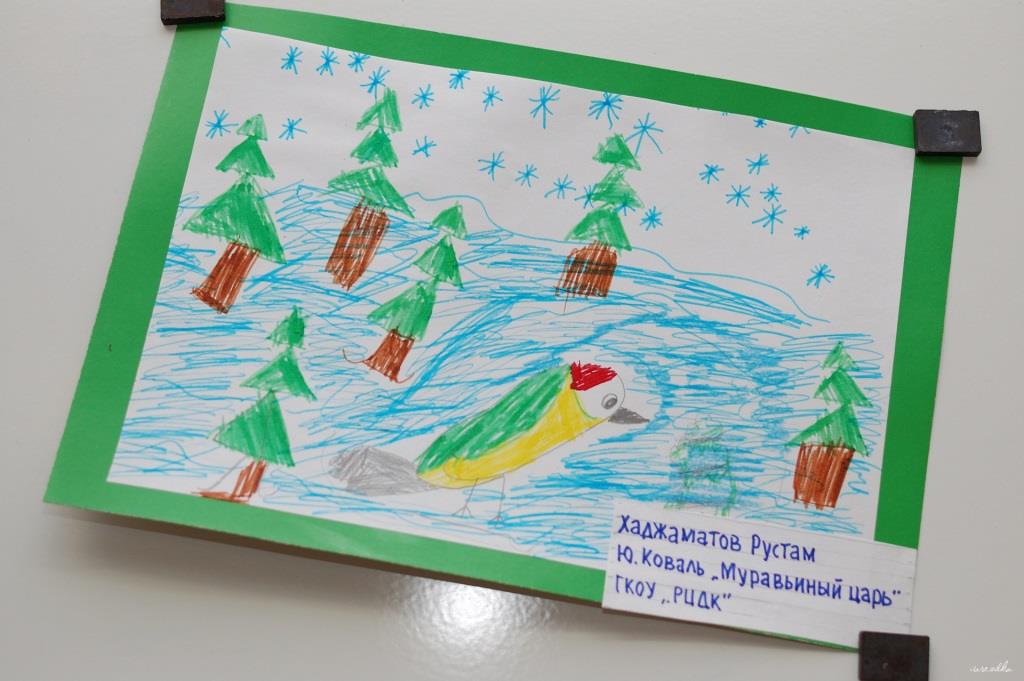 Хаджаматов Рустам
Ю. Коваль „Муравьиный царь"
ГКОУ „РЦДК"